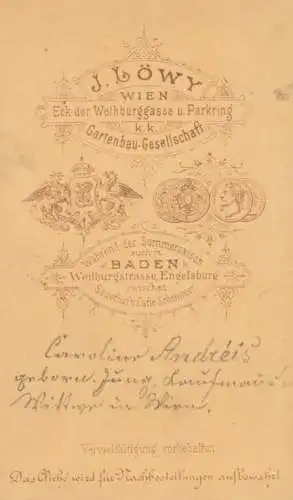 J. LÖWY
WIEN
Eck der Weihburggasse u. Parkring
k.k.
Gartenbau-Gesellschaft
Während der Sommersaison
auch in
BADEN
Weilburgstrasse, Engelsburg
zwischen
Sauerhof u. Café Schimmer
Caroline Andréis
geborn. Jung, Kaufmanns
Wittwe in Wien.
Vervielfältigung vorbehalten.
Das Cliché wird für Nachbestellungen aufbewahrt.